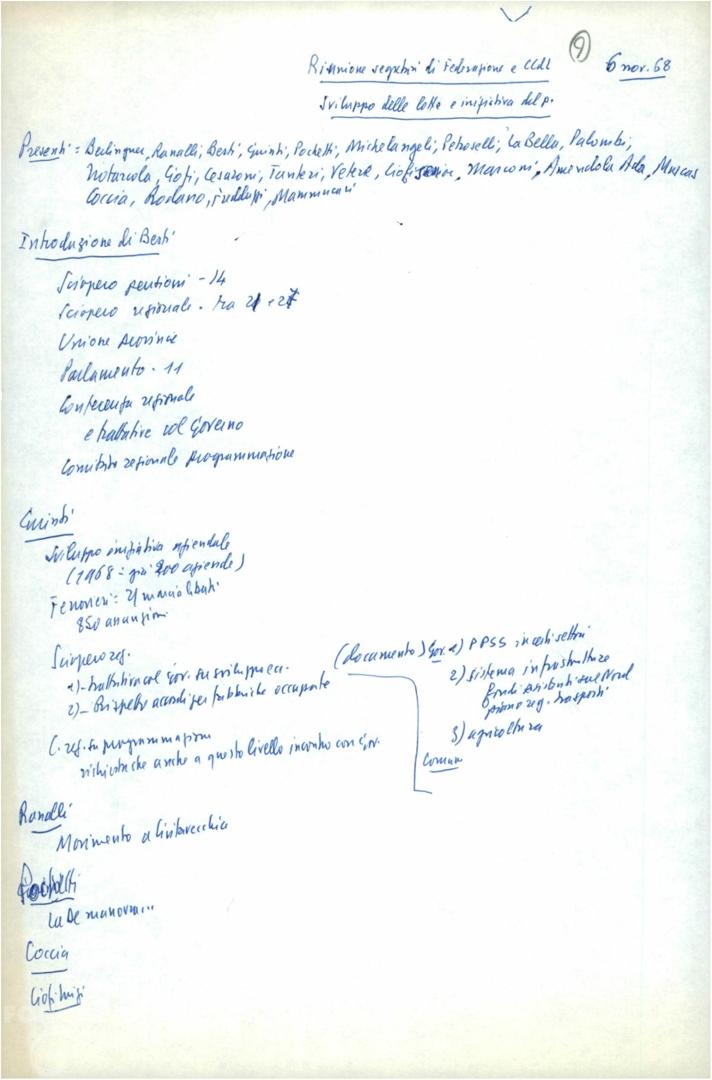 9
Riunione segretari di Federazione e CCdL 6 nov. 68
Sviluppo delle lotte e iniziativa del p.
Presenti = Berlinguer, Ranalli, Berti, Giunti, Pochetti, Michelangeli, Petroselli, La Bella, Palombi,
Notarcola, Ciofi, Cesaroni, Tanteri, Vetere, Ciofi, Marconi, Amendola Ada, Muscas
Coccia, Rodano, Freduzzi, Mammucari
Introduzione di Berti
Sciopero pensioni - 14
Sciopero regionale - tra 21 e 27
Unione province
Parlamento - 11
Conferenza regionale
e trattative col Governo
Comitato regionale programmazione
Giunti
Sviluppo iniziativa aziendale
(1968 = già 200 aziende)
Ferrovieri = 21 marcia
850 assunzioni
Sciopero reg.
1) - trattativa col gov. su sviluppo ec.
2) - Rispetto accordi per fabbriche occupate
(documento) Gov. 1) PPSS in certi settori
2) sistema infrastrutture
fondi distribuiti sul Nord
piano reg. trasporti
3) agricoltura
Comuni
C. reg. su programmazione
richiesta che anche a questo livello incontro con gov.
Ranalli
Movimento a Civitavecchia
Pochetti
La DC manovra...
Coccia
Ciofi Luigi